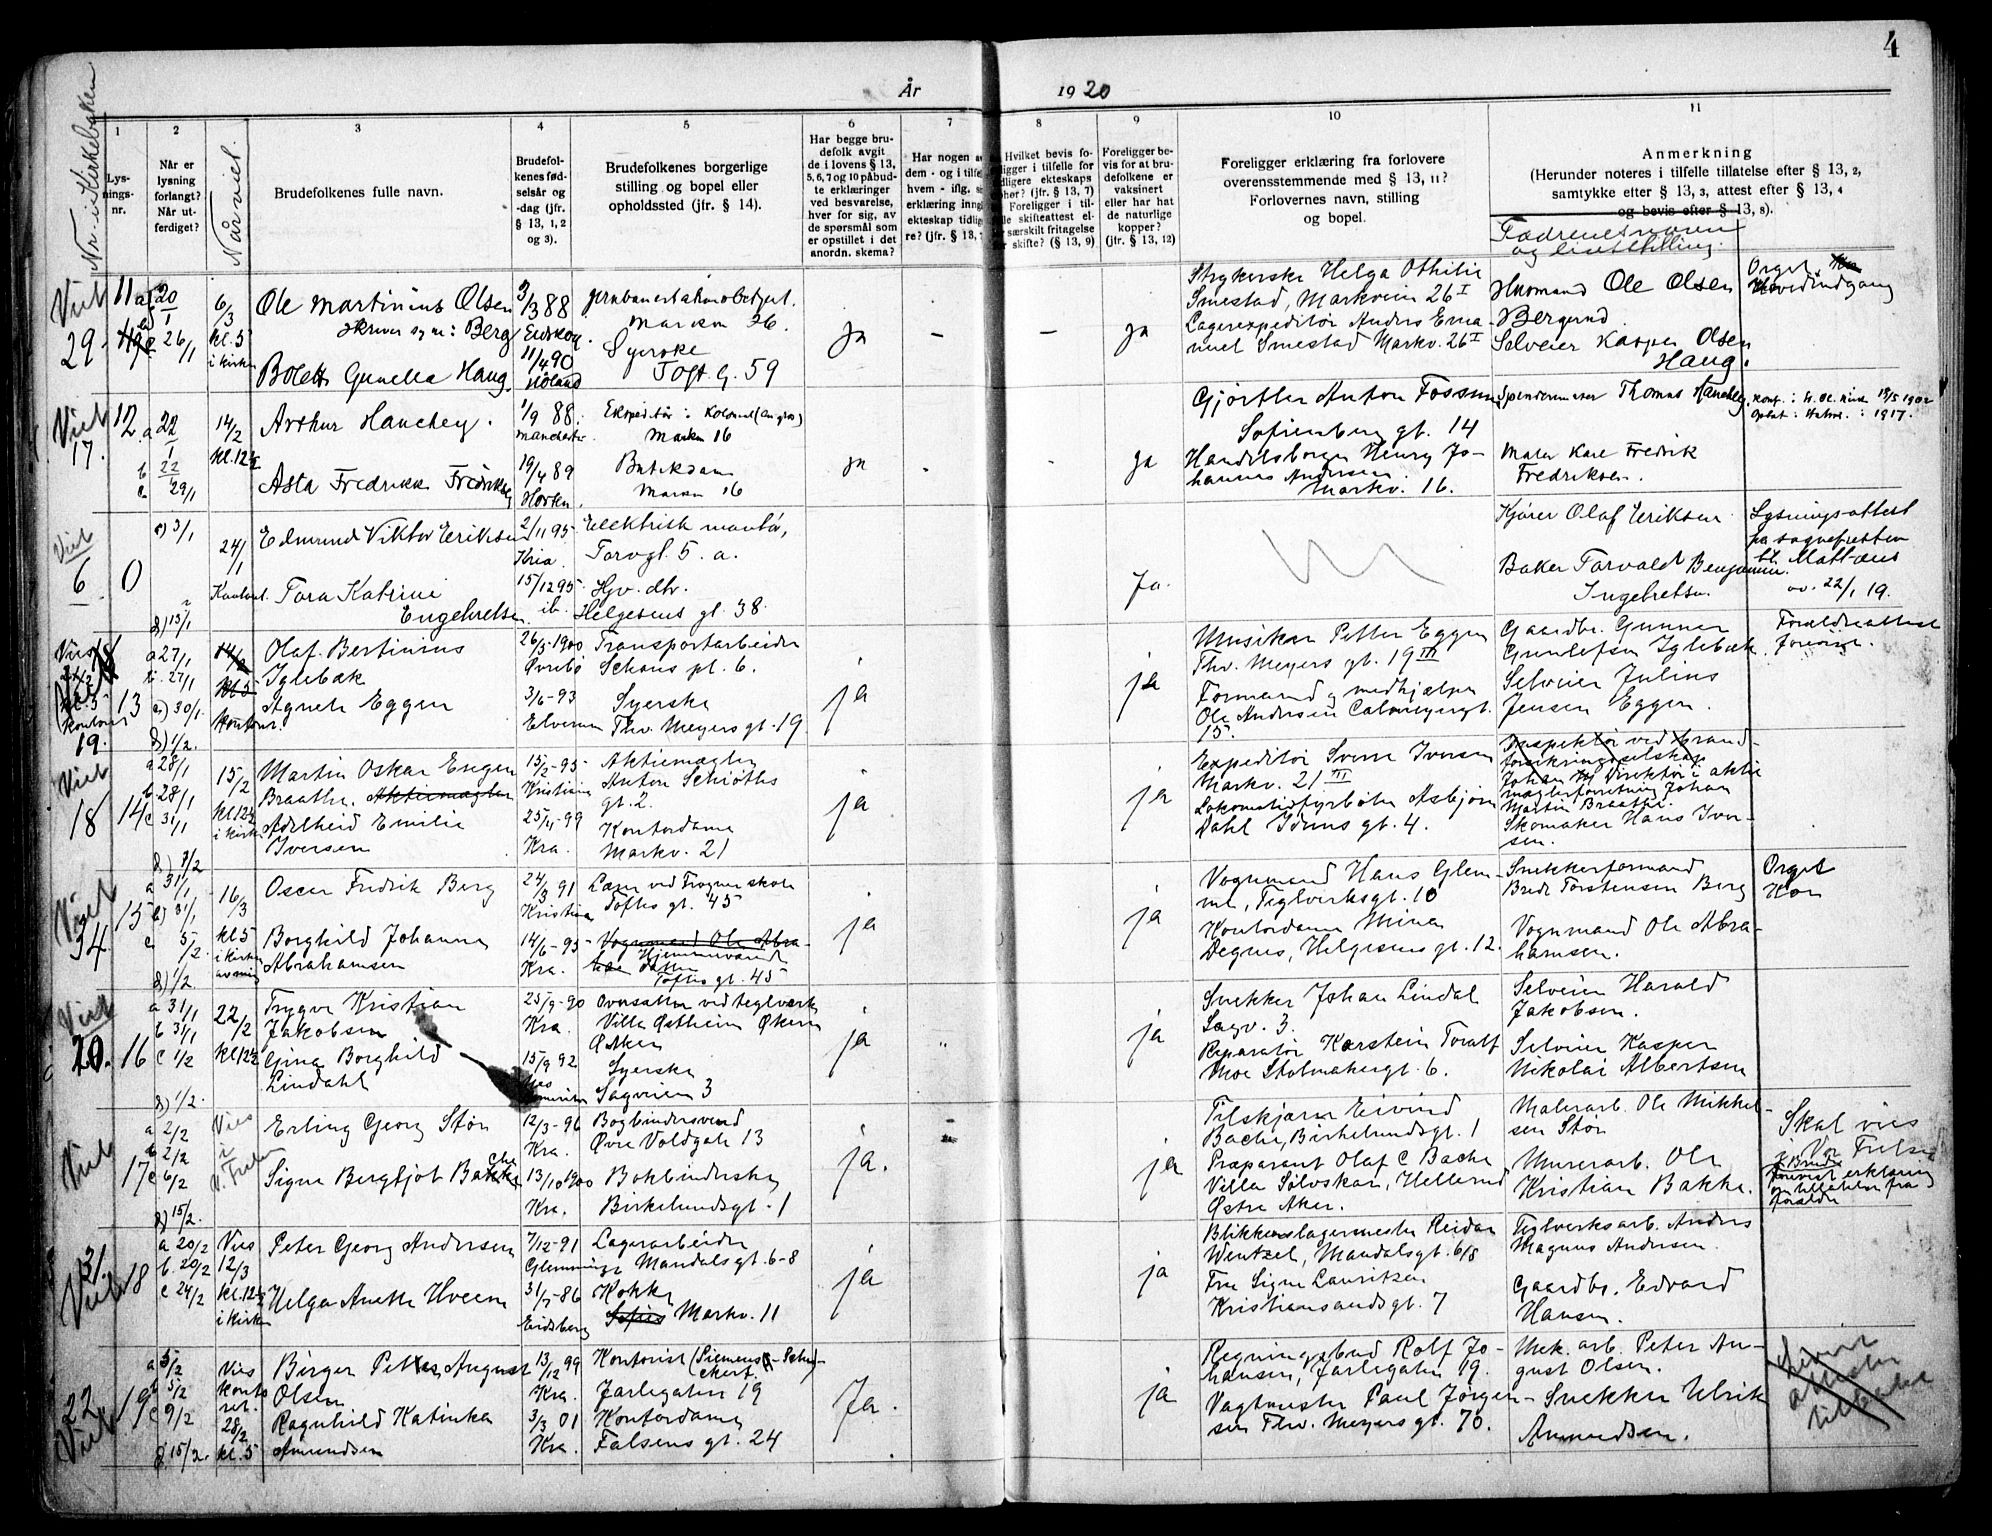 4
År 1920
Nr. i Kirkebøken
Når viet.
1
2
3
4
5
6
7
8
9
10
11
Lys-
nings-
nr.
Når er
lysning
forlangt?
Når ut-
ferdiget?
Brudefolkenes fulle navn.
Brudefol-
kenes fød-
selsår og
-dag (jfr.
§ 13, 1, 2
og 3).
Brudefolkenes borgerlige
stilling og bopel eller
opholdssted (jfr. § 14).
Har begge bru-
defolk avgit
de i lovens § 13,
5, 6, 7 og 10 påbud-
te erklæringer
ved besvarelse,
hver for sig, av
de spørsmål som
er opstillet i det
anordn. skema?
Har nogen av
dem - og i tilfel
hvem - iflg. si
erklæring inng
ekteskap tidlig
re? (jfr. § 13,
Hvilket bevis fo-
ligger i tilfelle for
dligere ekteskaps
pher? (jfr. § 13, 7)
Foreligger i til-
lle skifteattest el-
r særskilt fritagelse
r skifte? (§ 13, 9)
Foreligger be-
vis for at bru-
defolkene er
vaksinert
eller har hat
de naturlige
kopper?
(§ 13, 12)
Foreligger erklæring fra forlovere
overensstemmende med § 13, 11?
Forlovernes navn, stilling
og bopel.
Anmerkning
(Herunder noteres i tilfelle tillatelse efter § 13, 2,
samtykke efter § 13, 3, attest efter § 13, 4
og bevis efter § 13, 8).
Fædrenes navn
og livsstilling.
Viet
29
11
a 20/1
26/1
6/3
kl. 5
i kirken
Ole Martinius Olsen
skriver sig nu: Berg
Bolette Gunella Haug
3/3 88
Eidskog.
11/4 90
Høland
Markvn 26.
Syerske
Toft. g. 59
ja
-
-
ja
Strykerske Helga Othilie
Smestad, Markveien 26 I
Lagerexpeditør Anders Ema-
nuel Smestad Markv. 26 I
Husmand Ole Olsen
Bergerud.
Selveier Kasper Olsen
Haug.
Orgel.
Hovedindgang
Viet
17.
12
a 22/1
b 22/1
c 29/1
14/2
kl. 12½
Arthur Hanchey.
Asta Fredrikke Fredriksen
1/9 88.
Manchester.
19/4 89
Horten.
Ekspeditør: Kolonial (en gros)
Markvn 16
Butikdame
Markvn 16
ja
ja
Gjørtler Anton Fossum
Sofienberg gt. 14
Handelsborger Henry Jo-
hannes Andersen
Markv. 16.
Thomas Hanchey.
Maler Kare Fredrik
Fredriksen.
Viet
6
0
a) 3/1
b) 13/1
24/1
Kontoret.
Edmund Viktor Eriksen
Tora Katrine
Engebretsen
2/11 95
Kria
15/12 95
ib.
Elektrisk montør,
Torvgt. 5. a.
Hjv. dtr.
Helgesens gt. 38.
Ja.
Kjører Olaf Eriksen
Baker Torvald Benjamin.
Ingebretsen.
Lysningsattest
fra sognepresten
til Mattæus
av. 22/1 19.
Viet
kl. 5
kontoret
19.
13
a 27/1
b. 27/1
c) 30/1.
d) 1/2.
14/2
kl 5
kontor.
Olaf Bertinius
Iglebæk
Agnete Eggen
26/3-1900
Øvrebø
3/6-93
Elverum
Transportarbeider
Schous pl. 6.
Syerske
Thv. Meyers gt. 19
ja
ja
Musiker Petter Eggen
Thv. Meyers gt. 19 III
Formand og medhjælper
Ole Andersen Calmeyergt.
15.
Gaardbr. Gunner
Gunlefsen Iglebæk
Selveier Julius
Jensen Eggen.
Forældreattest
forevist.
Viet
18
14
a 28/1
b 28/1
c 31/1
d) 1/2
15/2
kl 12½
i kirken
Martin Oskar Eugen
Braathe. Aktiemægler
Adelheid Emilie
Iversen
15/2-95
Kristiania
25/4-99
Kra.
Aktiemægler
Anton Schiøtts
gt. 2.
Kontordame
Markv. 21
ja
ja
Expeditør Sverre Iversen
Markv. 21 III
Lokomotivfyrbøter Asbjørn
Dahl Iduns gt. 4.
Inspektør ved brand-
forsikringsselskap
Johan Direktør i aktie
mæglerforretning Johan
Martin Braathe.
Skomaker Hans Iver-
sen.
Viet
34
15
a 31/1
b) 31/1
c 5/2
d) 1/2.
16/3
kl 5
i kirken
Oscar Fredrik Berg
Borghild Johanne
Abrahamsen
24/3 91
Kristiania
14/6-95
Kra.
Lærer ved Frogner skole
Toftes gt. 45
Vognmand Ole Abra-
Hjemmeværende
datter
Toftes gt. 45
ja
ja
Vognmand Hans Glem-
me, Teglverksgt. 10
Kontordame Mina
Degnes, Helgesens gt. 12.
Snekkerformand
Brede Torstensen Berg
Vognmand Ole Abra-
hamsen.
Orgel
Kor
Viet
20.
16
a 31/1
b 31/1
c 1/2
d) 1/2.
22/2
kl 12½
Trygve Kristian
Jakobsen
Gina Borghild
Lindahl
25/9-90
Kra.
15/9 92
Nes
Ovnsetter ved teglverk
Villa Østheim Økern
Ø Aker
Syerske
Sagveien 3
ja
ja
Snekker Johan Lindal
Sagv. 3.
Reparatør Karstein Toralf
Moe Stolmakergt. 6.
Selveier Harald
Jakobsen.
Selveier Kasper
Nikolai Albertsen
Viet
17
a 2/2
b 2/2
c 6/2
d) 15/2.
Vies
i
V. Frelser
Erling Georg Støn
Signe Bergljot Bakke
12/3-96
Kra.
13/10 1900
Kra.
Bogbindersvend
Øvre Voldgate 13
Bokbinderske
Birkelundsgt. 1
ja.
ja
Filskjærer Eivind
Bache, Birkelundsgt. 1
Præparant Olaf C Bache
Villa Solvskar, Hellerud
Østre Aker.
Malerarb. Ole Mikkel-
sen Støn
Murerarb. Ole
Kristian Bakke.
Skal vies
i Vor Frelse
Brud
forevist erklæring
om tillatelse fra
forældre
31.
Viet
18
a 20/2
b. 20/2
c 24/2
Vies
12/3
kl. 12½
i kirken
Peter Georg Andersen
Helga Anette Hveem
7/12-91
Glemminge
31/7-86
Eidsberg
Lagerarbeider
Mandalsgt. 6-8
Kokke
Sofies Markv. 11
ja
ja
Blikkenslagermester Reidar
Wentzel, Mandalsgt. 6/8
Fru Signe Lauritzen
Kristiansandsgt. 7
Teglverksarb. Anders
Magnus Andersen.
Gaardbr. Edvard
Hansen.
22
Viet
19
a 5/2
b 5/2
c 9/2
d. 15/2.
Vies
konto
ret.
28/2
kl. 5
Birger Petter August
Olsen
Ragnhild Katinka
Amundsen
13/12 99
Kra.
3/3 01
Kra.
Kontorist (Siemens-Schu-
ckert.
Jarlegaten 19
Kontordame
Falsens gt. 24
Ja.
ja
Regningsbud Rolf Jo-
hansen, Jarlegaten 19.
Vagtmester Paul Jørgen-
sen Thv. Meyers gt. 70.
Mek. arb. Peter Au-
gust Olsen.
Snekker Ulrik
Amundsen.